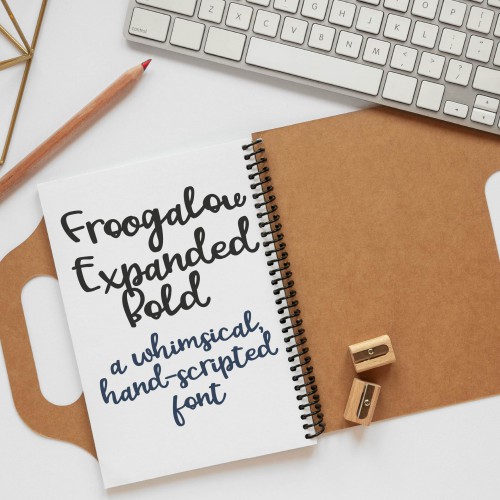 Froogalou
Expanded
Bold
a whimsical,
hand-scripted
font
Z X C V B N M